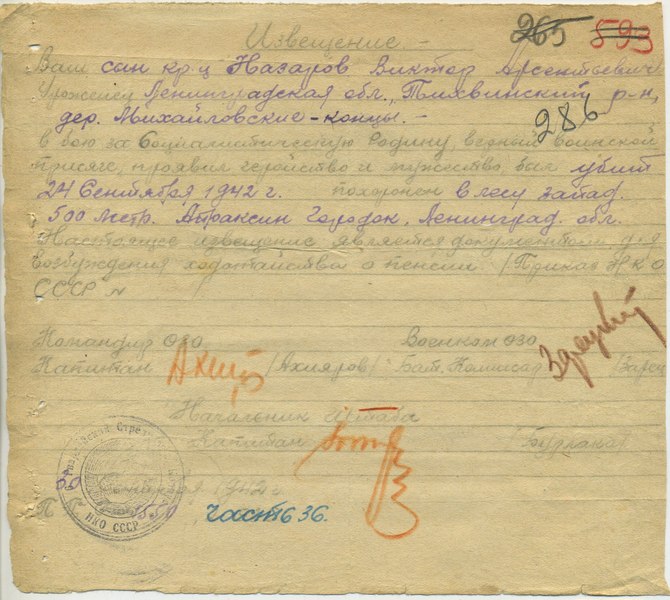 265 593
Извещение. -
Ваш сын кр-ц Назаров Виктор Арсентьевич
Уроженец Ленинградская обл., Тихвинский р-н,
дер. Михайловские-концы. -
286
в бою за Социалистическую Родину, верный воинской
присяге, проявив геройство и мужество, был убит
24 Сентября 1942 г. похоронен в лесу запад.
500 метр. Апраксин Городок. Ленинград. обл.
Настоящее извещение является документом для
возбуждения ходатайства о пенсии. /Приказ НКО
СССР №
Командир ОЗО Военком ОЗО
Капитан /Ахияров/ Бат. Комиссар
Начальник Штаба
Капитан /Бурлака/
1942 г.
НКО СССР
П П 550, часть 36.